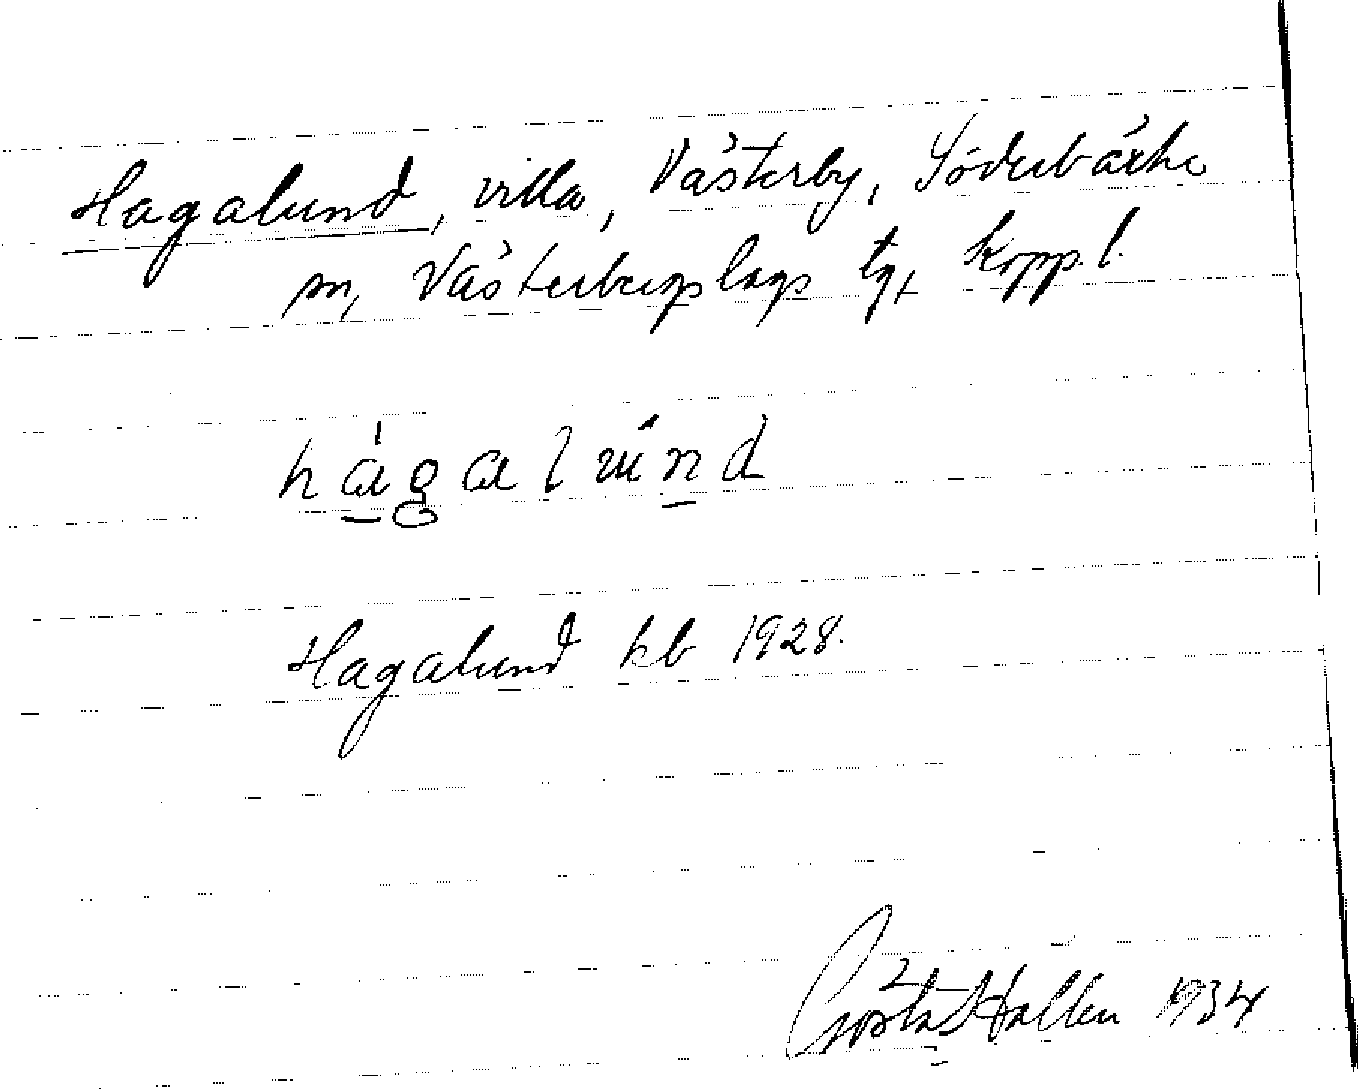 Hagalund, villa, Västerby, Söderbärke
sn, Västerbergslags tg, Koppl.
hágalund
Hagalund kb 1928.
Gösta Hallén 1934